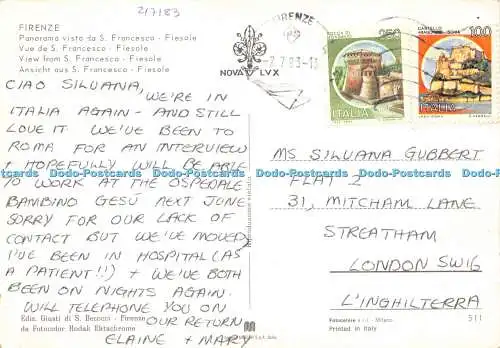 2/7/83
FIRENZE
Panorama visto da S. Francesco - Fiesole
Vue de S. Francesco - Fiesole
View from S. Francesco - Fiesole
Ansicht aus S. Francesco - Fiesole
NOVA LUX
FIRENZE
-2.7.83-13
250
ITALIA
100
ITALIA
CIAO SILVANA,
WE'RE IN
ITALIA AGAIN - AND STILL
LOVE IT WE'VE BEEN TO
ROMA FOR AN INTERVIEW
+ HOPEFULLY WILL BE ABLE
TO WORK AT THE OSPEDALE
BAMBINO GESU NEXT JUNE
SORRY FOR OUR LACK OF
CONTACT BUT WE'VE MOVED
I'VE BEEN IN HOSPITAL (AS
A PATIENT!!) + WE'VE BOTH
BEEN ON NIGHTS AGAIN.
WILL TELEPHONE YOU ON
OUR RETURN
ELAINE + MARY
MS SILVANA GUBBERT
FLAT 2
31, MITCHAM LANE
STREATHAM
LONDON SW16
L'INGHILTERRA
Ediz. Giusti di S. Becocci - Firenze
da Fotocolor Kodak Ektachrome
Riproduzione vietata
Fotocelere s.r.l. - Milano
Printed in Italy
511
Postcards Data-Postcards Data-Postcards Data-Postcards Data-Postcards